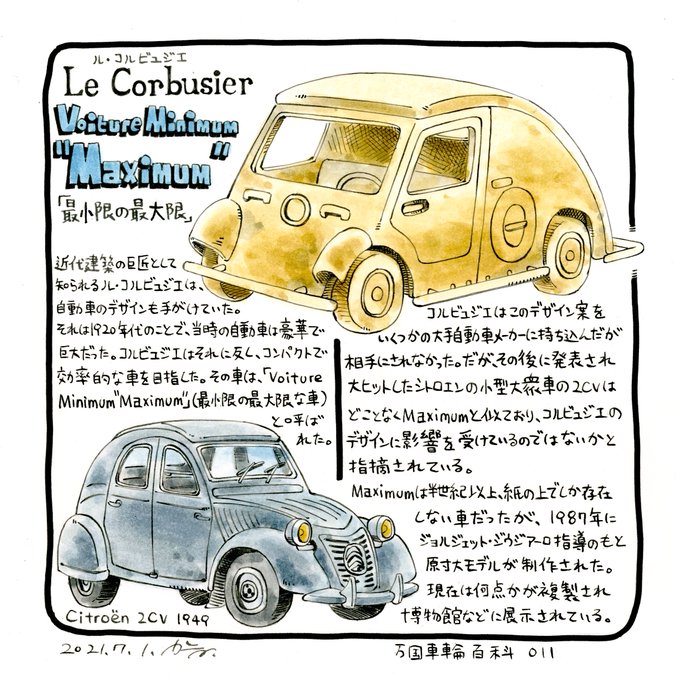 ル・コルビュジエ
Le Corbusier
Voiture Minimum
"Maximum"
「最小限の最大限」
近代建築の巨匠として
知られるル・コルビュジエは、
自動車のデザインも手がけていた。
それは1920年代のことで、当時の自動車は豪華で
巨大だった。コルビュジエはそれに反し、コンパクトで
効率的な車を目指した。その車は、「Voiture
Minimum"Maximum"」(最小限の最大限な車)
と呼ば
れた。
コルビュジエはこのデザイン案を
いくつかの大手自動車メーカーに持ち込んだが
相手にされなかった。だが、その後に発表され
大ヒットしたシトロエンの小型大衆車の2CVは
どことなくMaximumと似ており、コルビュジエの
デザインに影響を受けているのではないかと
指摘されている。
Maximumは半世紀以上、紙の上でしか存在
しない車だったが、1987年に
ジョルジェット・ジウジアーロ指導のもと
原寸大モデルが制作された。
現在は何点かが複製され
博物館などに展示されている。
Citroën 2CV 1949
2021.7.1.
万国車輪百科 011